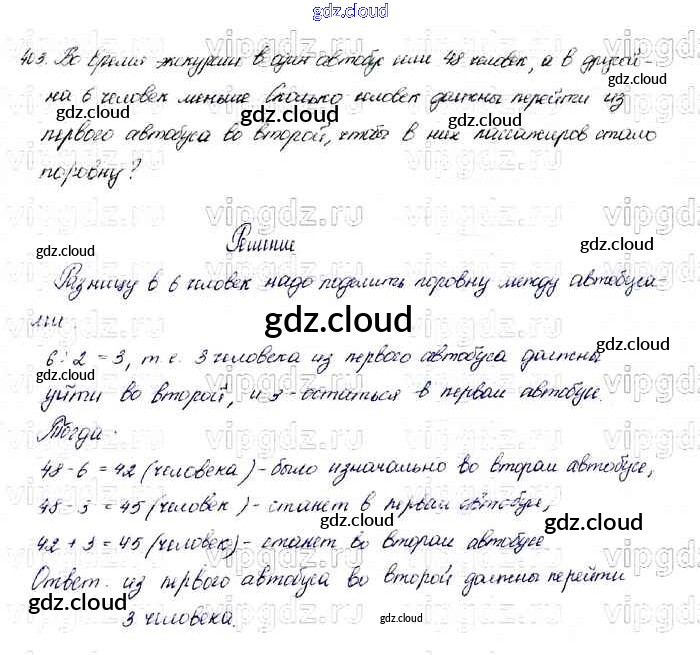 gdz.cloud
423. Во время экскурсии в один автобус сели 48 человек, а в другой -
на 6 человек меньше. Сколько человек должны перейти из
первого автобуса во второй, чтобы в них пассажиров стало
поровну?
Решение
Разницу в 6 человек надо поделить поровну между автобуса-
ми.
6 : 2 = 3, т.е. 3 человека из первого автобуса должны
уйти во второй, и 3 - остаться в первом автобусе.
Тогда:
48 - 6 = 42 (человека) - было изначально во втором автобусе,
48 - 3 = 45 (человек) - станет в первом автобусе,
42 + 3 = 45 (человек) - станет во втором автобусе
Ответ. из первого автобуса во второй должны перейти
3 человека.